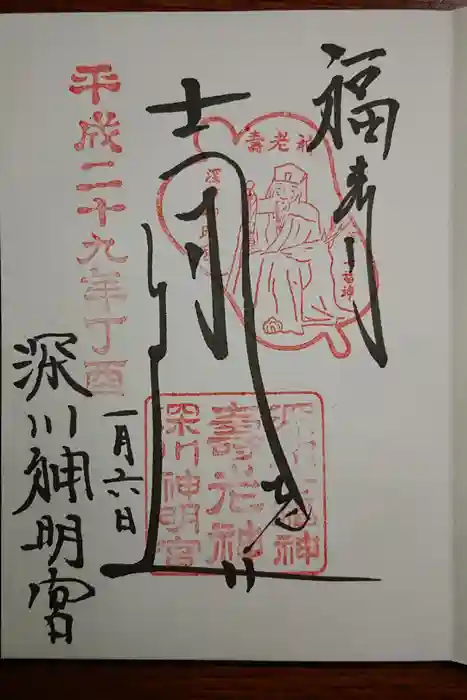 福寿
壽老神
深川神明宮
壽老神
深川神明宮
平成二十九年丁酉
一月六日
深川神明宮